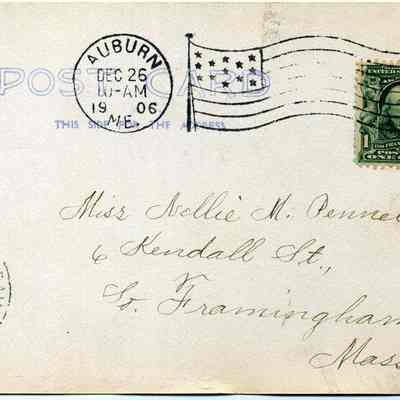 AUBURN
DEC 26
10-AM
19 06
ME.
POST CARD
THIS SIDE FOR THE ADDRESS
1
Miss Nellie M.
6 Kendall St.,
So. Framingham
Mass